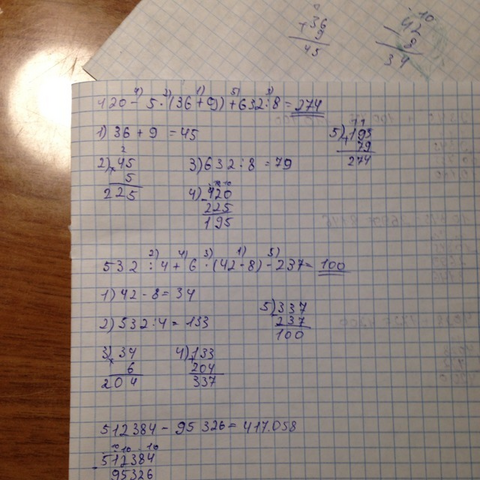 + 36
9
45
10
- 42
9
34
4) 2) 1) 5) 3)
420 - 5 · (36 + 9) + 632 : 8 = 274
1) 36 + 9 = 45
2
2) × 45
5
225
3) 632 : 8 = 79
4) - 420
225
195
1 1
5) + 195
79
274
2) 4) 3) 1) 5)
532 : 4 + 6 · (42 - 8) - 237 = 100
1) 42 - 8 = 34
2) 532 : 4 = 133
3) × 34
6
204
4) + 133
204
337
5) 337
237
100
512384 - 95326 = 417.058
- 512384
95326